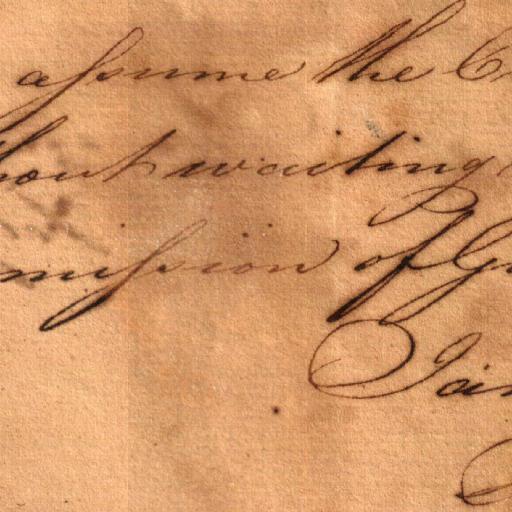 assume the
hout waiting
mission of